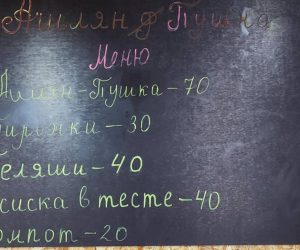 Ачилян & Пушка
Меню
Ачилян-Пушка-70
Пирожки-30
Беляши-40
сиска в тесте-40
омпот-20